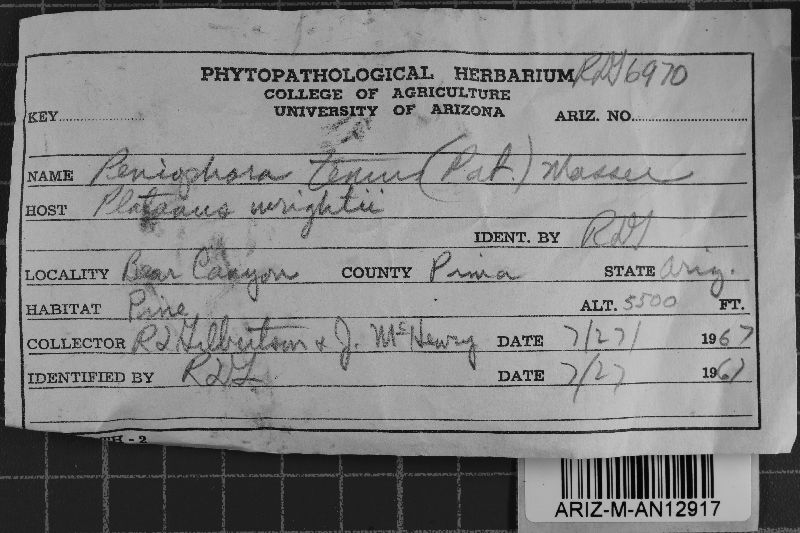 PHYTOPATHOLOGICAL HERBARIUM RDG 6970
COLLEGE OF AGRICULTURE
UNIVERSITY OF ARIZONA
KEY.................... ARIZ. NO..........................
NAME Peniophora tenuis (Pat.) Massee
HOST Platanus wrightii
IDENT. BY RDG
LOCALITY Bear Canyon COUNTY Pima STATE Ariz.
HABITAT Pine ALT. 5500 FT.
COLLECTOR RL Gilbertson & J. McHenry DATE 7/27/ 1967
IDENTIFIED BY RDG DATE 7/27 1967
H - 2
ARIZ-M-AN12917